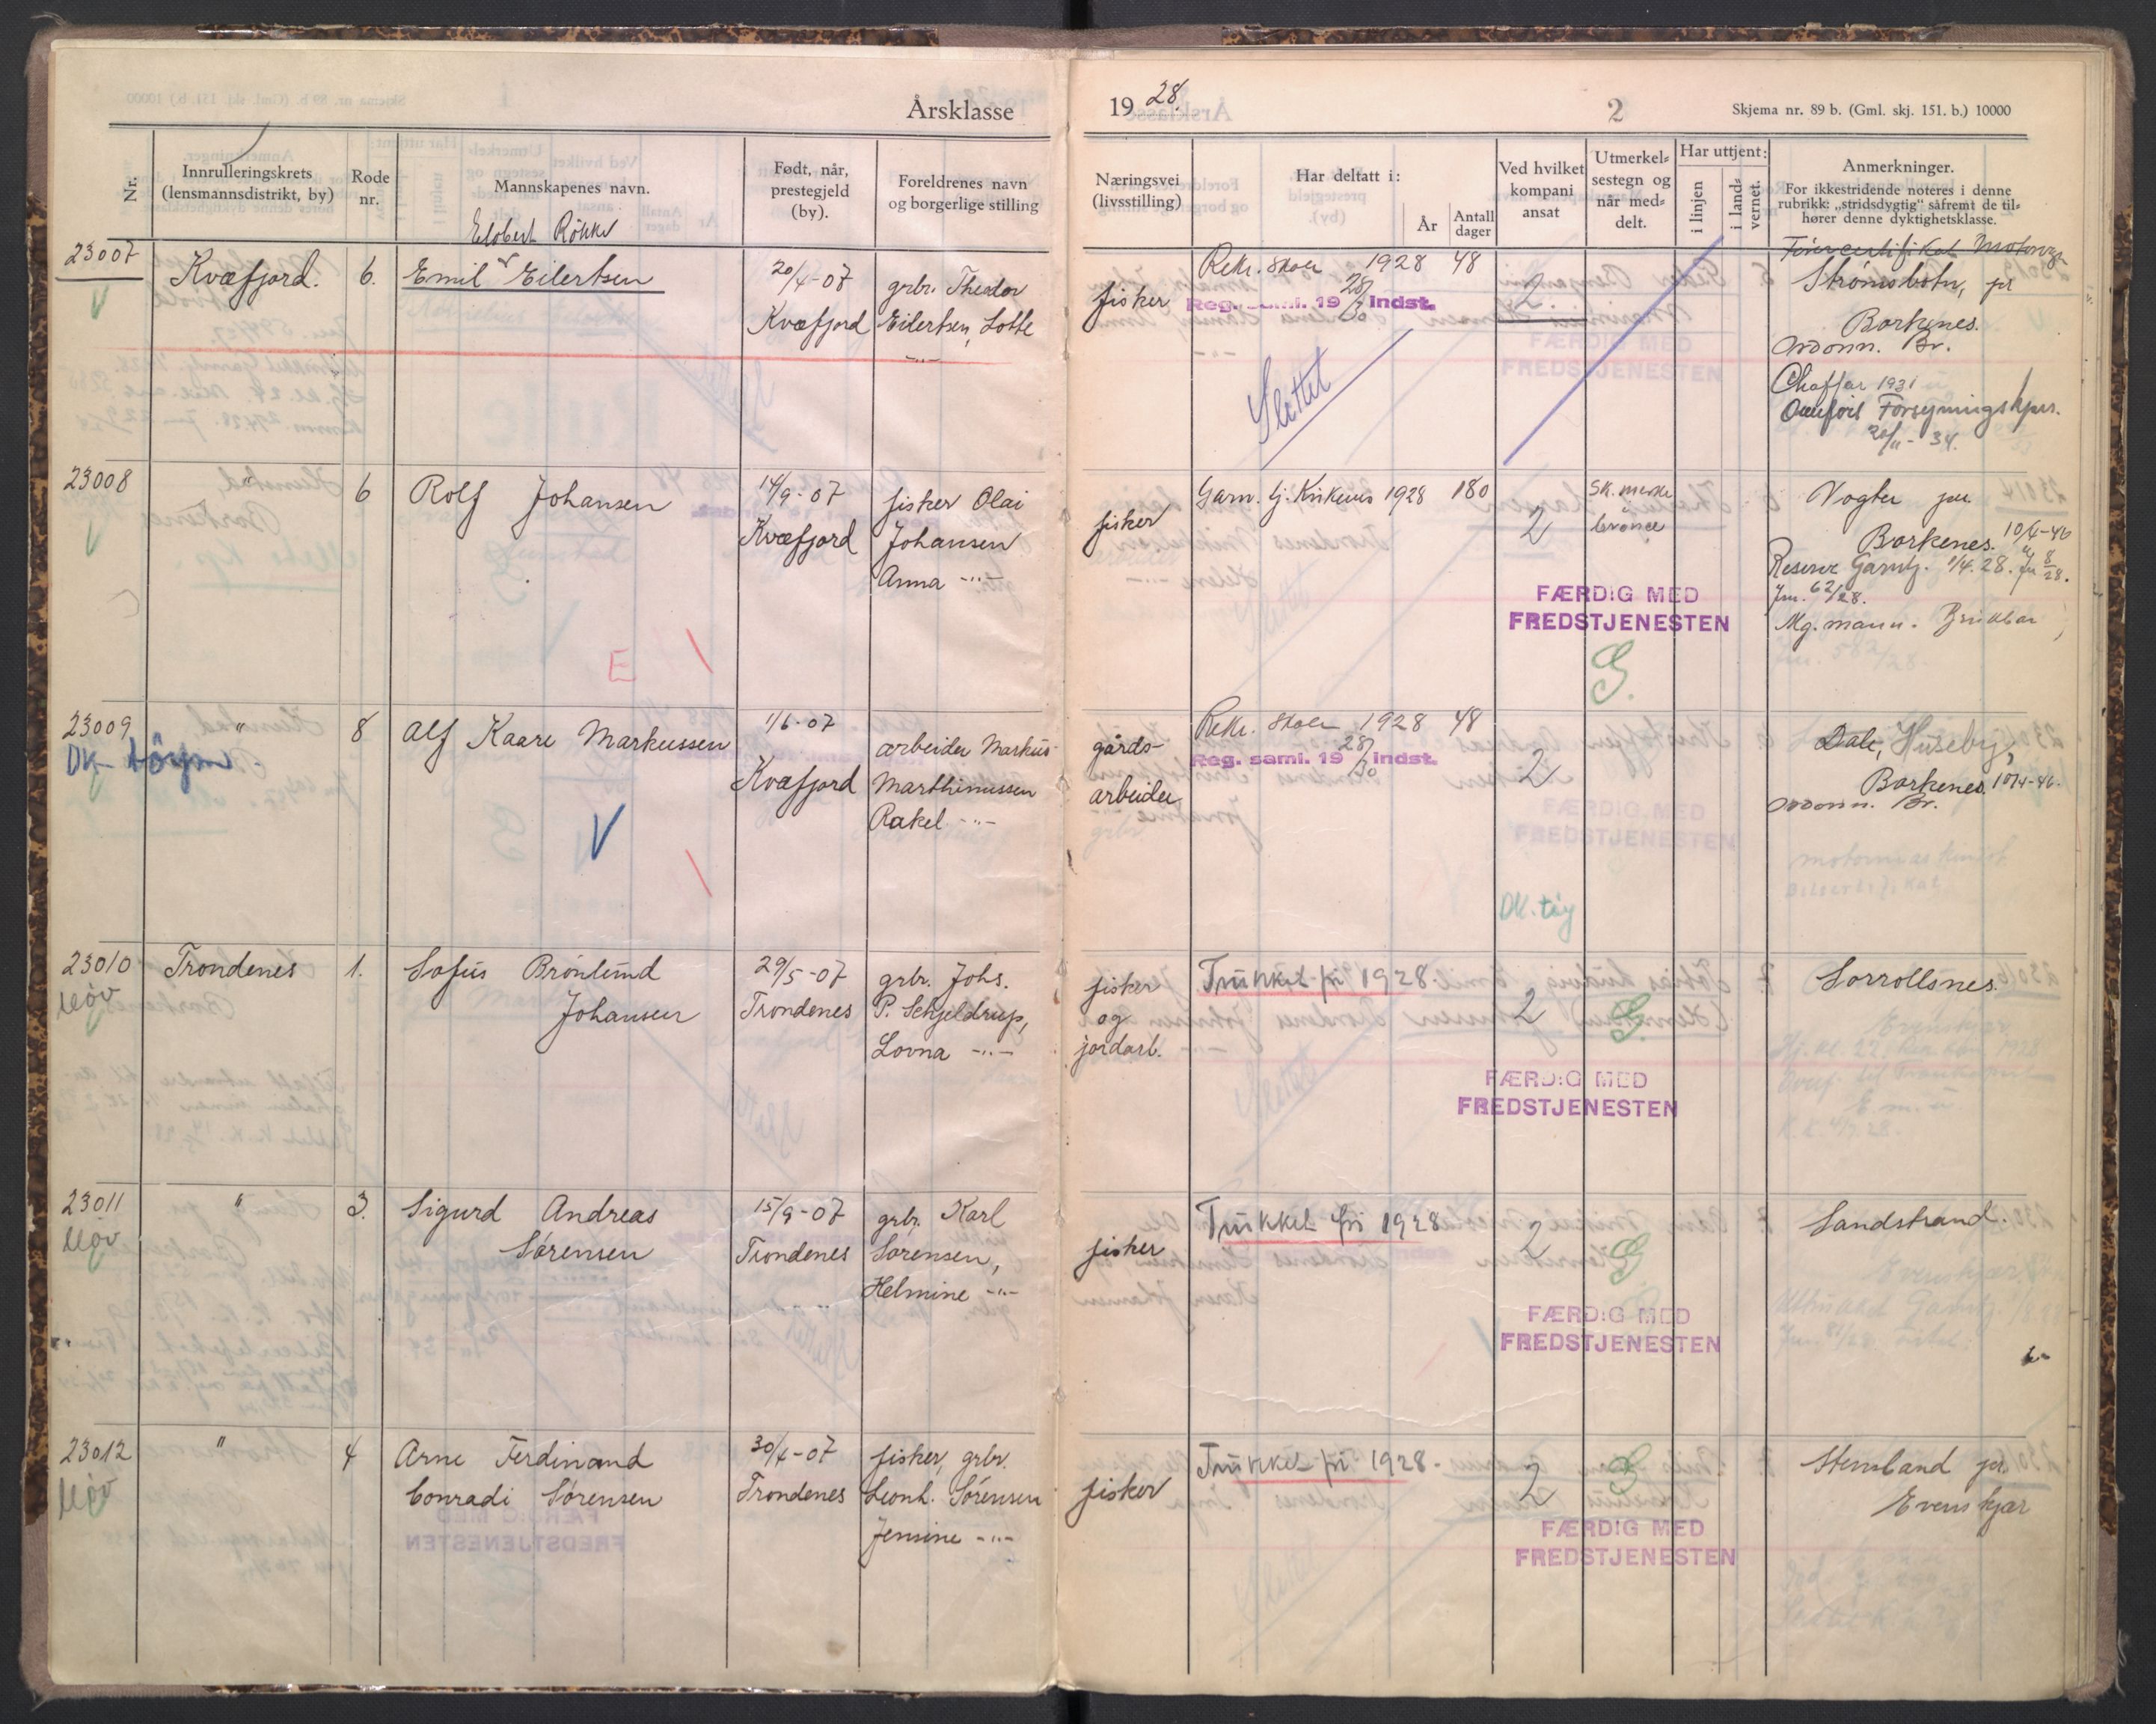 Årsklasse
19 28.
2
Skjema nr. 89 b. (Gml. skj. 151. b.) 10000
Nr.
Innrulleringskrets
(lensmannsdistrikt, by)
Rode
nr.
Mannskapenes navn.
Født, når,
prestegjeld
(by).
Foreldrenes navn
og borgerlige stilling
Næringsvei
(livsstilling)
Har deltatt i:
År
Antall
dager
Ved hvilket
kompani
ansat
Utmerkel-
sestegn og
når med-
delt.
Har uttjent:
i linjen
i land-
vernet.
Anmerkninger.
For ikkestridende noteres i denne
rubrikk: „stridsdygtig" såfremt de til-
hører denne dyktighetsklasse.
23007
Kvæfjord.
6.
Elobert Rökke
Emil Eilertsen
20/4-07
Kvæfjord
grbr. Theodor
Eilertsen, Lotte
-"-
fisker
Rekr. skole 1928 48
Reg. saml. 19 28/30 Indst.
Slettet
2
Førercertifikat Motorvgn
Strømsbotn, pr
Borkenes.
Ordonn. Br.
Chaffør 1931
Overført Forsyningskpn.
20/11-34.
23008
"
6
Rolf Johansen
14/9-07
Kvæfjord
fisker Olai
Johansen
Anna -"-
fisker
Garn. tj. Kirkenes 1928 180
2
Sk. merke
bronce
FÆRDIG MED
FREDSTJENESTEN
G.
Vogter pr.
Borkenes. 10/4-46
Reserve Garntj. 1/4.28.
Jnr. 62/28.
Mg. mann. Brukbar
E
23009
DK- tøym.
"
8
Alf Kaare Markussen
1/6-07
Kvæfjord
arbeider Markus
Marthinussen
Rakel -"-
gårds-
arbeider
Rekr. skole 1928 48
Reg. saml. 19 28/30 Indst.
2
FÆRDIG MED
FREDSTJENESTEN
DK. tøy
Dale, Huseby,
Borkenes. 10/4-46.
Ordonn. Br.
V
23010
Trondenes
1.
Sofus Brönlund
Johansen
29/5-07
Trondenes
grbr. Johs.
P. Schjeldrup,
Lovna -"-
fisker
og
jordarb.
Trukket fri 1928.
2
G.
FÆRDIG MED
FREDSTJENESTEN
Sorrollsnes.
23011
"
3.
Sigurd Andreas
Sørensen
15/9-07
Trondenes
grbr. Karl
Sørensen,
Helmine -"-
fisker
Trukket fri 1928
2
G
FÆRDIG MED
FREDSTJENESTEN
Sandstrand.
23012
"
4
Arne Ferdinand
Conradi Sørensen
30/4-07
Trondenes
fisker, grbr.
Leonh. Sørensen
Jensine -"-
fisker
Trukket fri 1928.
2
G
FÆRDIG MED
FREDSTJENESTEN
Stensland pr.
Evenskjær